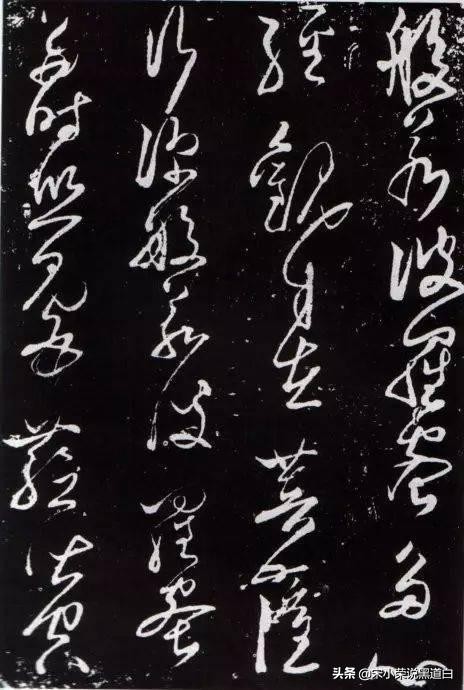 般若波羅蜜多心
經 觀自在菩薩
行深般若波羅蜜
多時照見五蘊皆空
头条 @宋小荣说黑道白